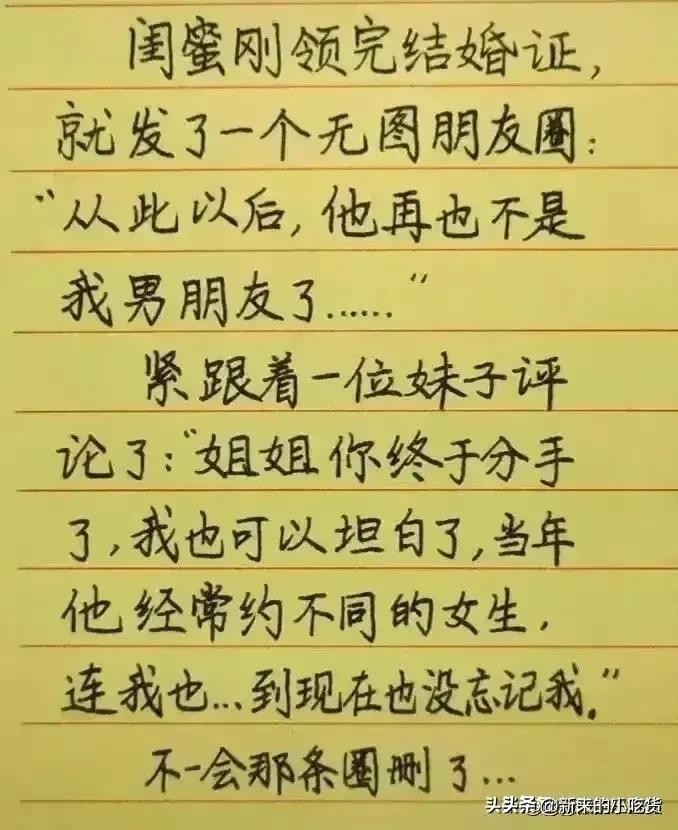 闺蜜刚领完结婚证,
就发了一个无图朋友圈:
“从此以后,他再也不是
我男朋友了……”
紧跟着一位妹子评
论了:“姐姐你终于分手
了,我也可以坦白了,当年
他经常约不同的女生,
连我也...到现在也没忘记我。”
不一会那条圈删了...
头条 @新来的小吃货